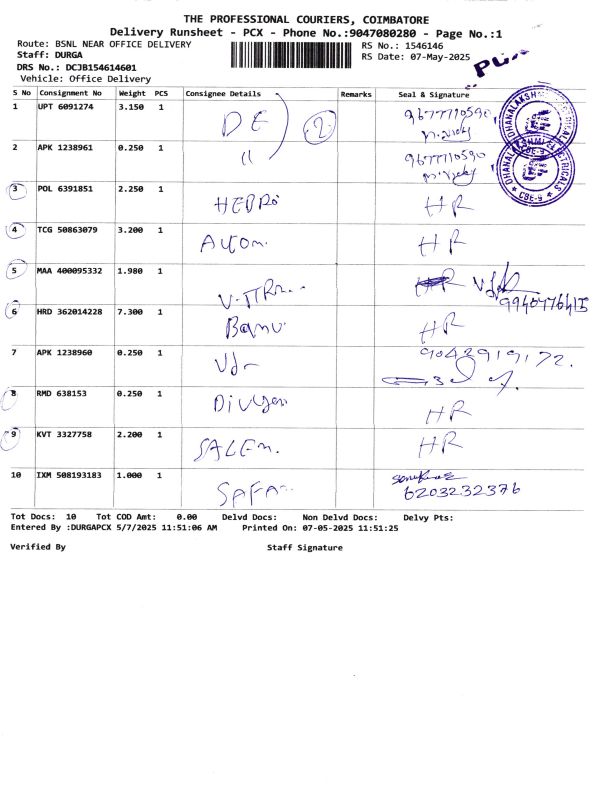 THE PROFESSIONAL COURIERS, COIMBATORE
Delivery Runsheet - PCX - Phone No.:9047080280 - Page No.:1
Route: BSNL NEAR OFFICE DELIVERY RS No.: 1546146
Staff: DURGA RS Date: 07-May-2025
DRS No.: DCJB154614601
Vehicle: Office Delivery
S No Consignment No Weight PCS Consignee Details Remarks Seal & Signature
1 UPT 6091274 3.150 1 DE 2 9677710590
2 APK 1238961 0.250 1 11 9677710590
3 POL 6391851 2.250 1 HR
4 TCG 50863079 3.200 1 HR
5 MAA 400095332 1.980 1 9940776415
6 HRD 362014228 7.300 1 HR
7 APK 1238960 0.250 1 9042919172.
8 RMD 638153 0.250 1 HR
9 KVT 3327758 2.200 1 HR
10 IXM 508193183 1.000 1 6203232376
Tot Docs: 10 Tot COD Amt: 0.00 Delvd Docs: Non Delvd Docs: Delvy Pts:
Entered By :DURGAPCX 5/7/2025 11:51:06 AM Printed On: 07-05-2025 11:51:25
Verified By Staff Signature